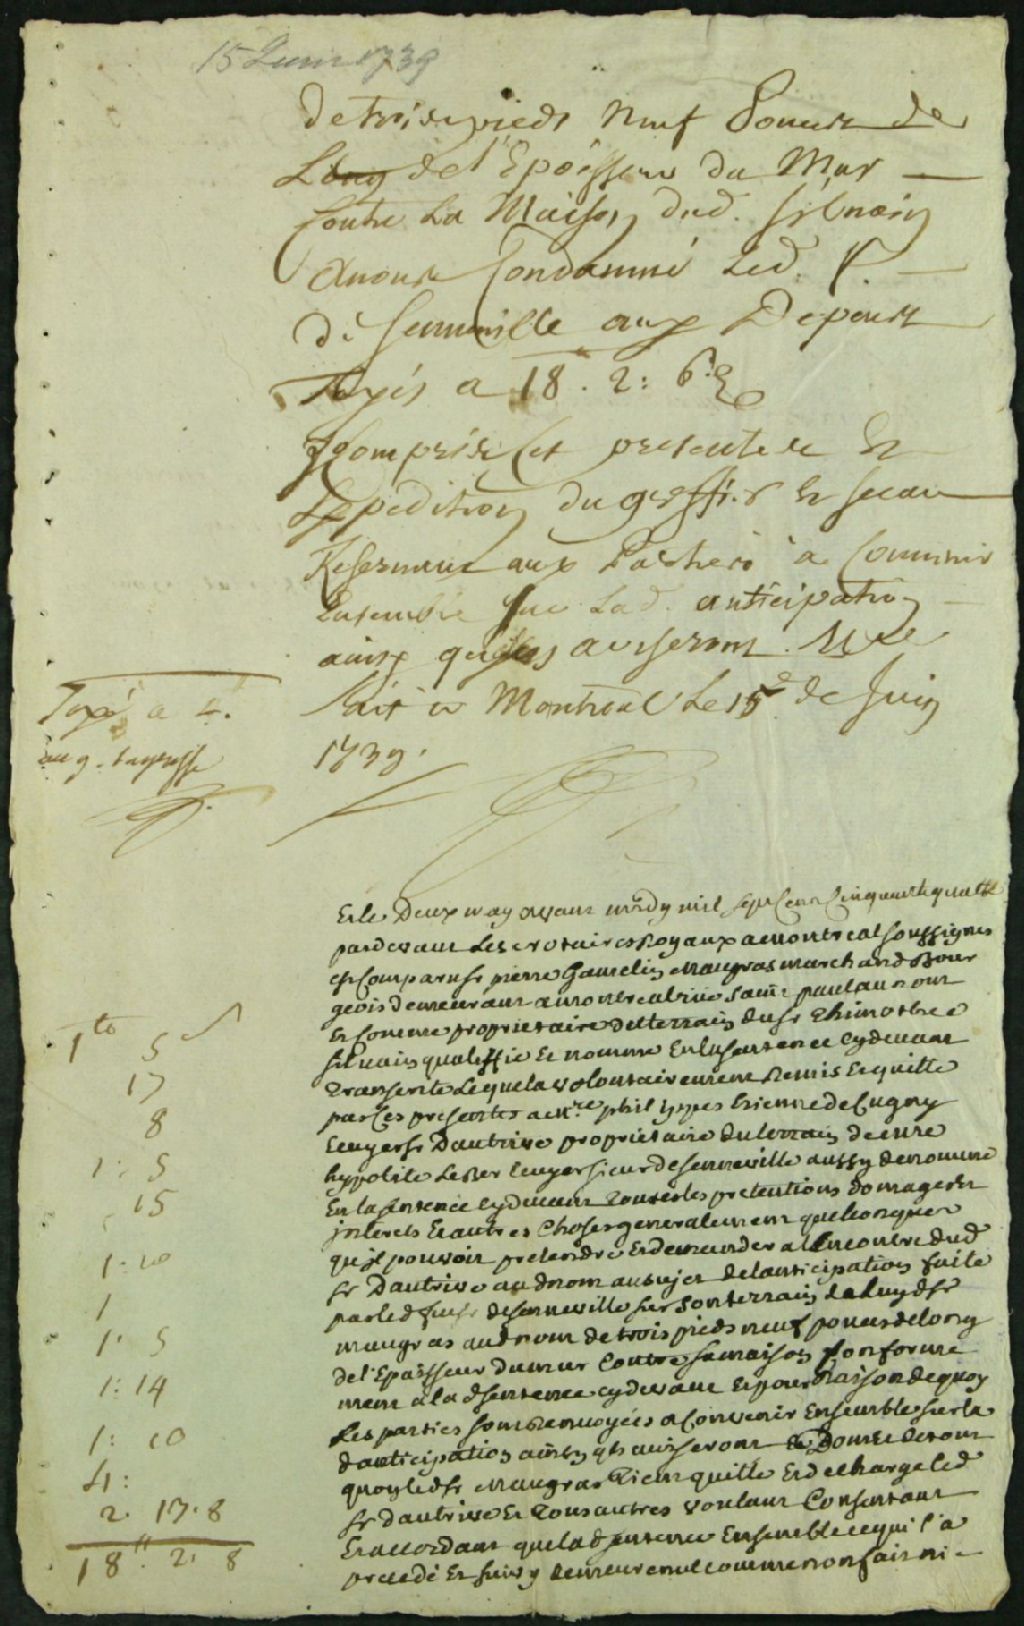 15 Juin 1739
de trois pieds neuf pouces de
Long de l'Epoisseur du Mur
Contre La Maison dud. Silvain
Avons Condamné Led. Sr
De Senneville aux Depens
Taxés a 18. 2: 6
Y Compris Ces presentes Et
Expedition du greffier Et sceau
Reservant aux Parties a Convenir
Ensemble sur Lad. anticipation
ainsy quelles aviseront.
fait a Montreal Le 15e de Juin
1739.
Taxé a 4.
Et le Deux may avant midy mil sept Cent Cinquante quatre
pardevant Les notaires Royaux a montreal soussignes
est Comparu sr pierre Gamelin maugras marchand Bour
geois demeurant a montreal rue saint paul au nom
Et Comme proprietaire du terrain du sr Thimothée
silvain qualiffié Et nommé En la sentence Cy devant
Transcrite Lequel a volontairement Remis Et quitté
par Ces presentes a mre phillippes Etienne de Cugny
Ecuyer sr Dautrive proprietaire du terrain de mre
hyppolite LeBer Ecuyer sieur de senneville aussy denommé
En la sentence Cy devant Toutes les pretentions Domages Et
interets Et autres Choses generalement quelconques
quil pouvoit pretendre Et demander a Lencontre dud
sr Dautrive aud nom au sujet de lanticipation faite
par led feu sr de senneville sur son terrain La Luy d sr
maugras aud nom de trois pieds neuf pouces de long
de l'Epaisseur du mur Contre sa maison Conforme
ment a la d sentence cy devant Et pour Raison de quoy
Les parties sont Renvoyées a Convenir Ensemble sur la
d anticipation ainsy qls aviseront Et Dont Et de tout
quoy led sr maugras Tient quitte Et decharge led
sr dautrive Et Tous autres voulant Consentant
Et accordant que la d sentence Ensemble ce qui l'a
precedé Et suivy demeure nul comme non fait ni
1to 5 s
17
8
1: 5
15
1: 10
1
1: 5
1: 14
1: 10
4:
2. 17. 8
18 " 2. 8